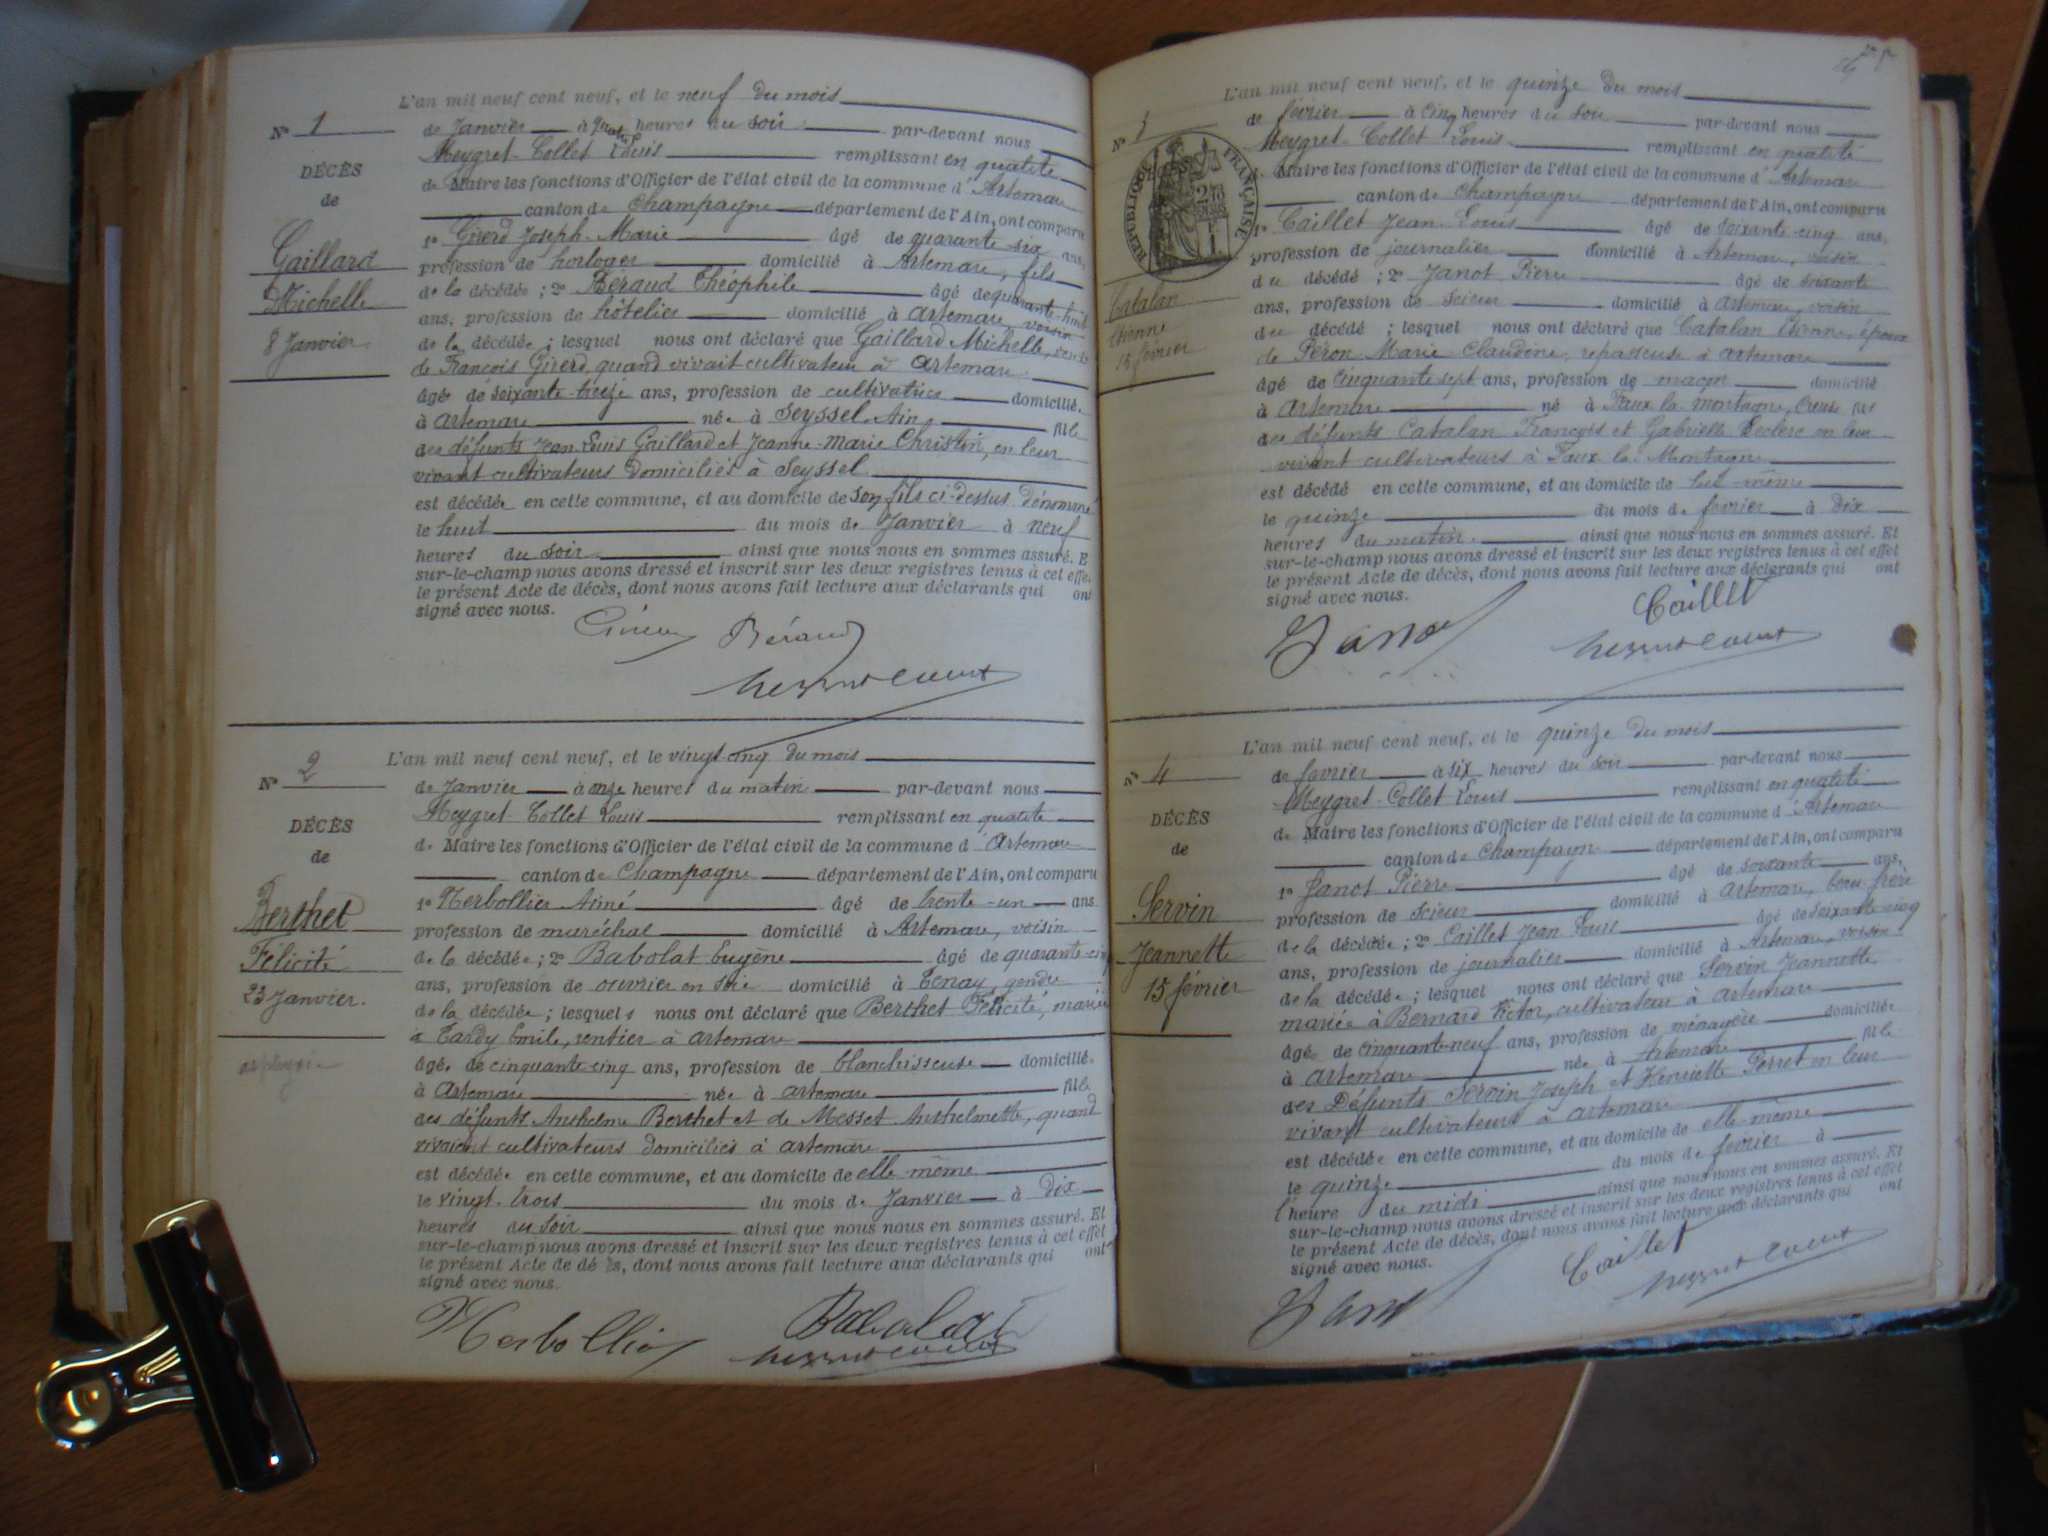 L'an mil neuf cent neuf, et le neuf du mois
N° 1
de Janvier à quatre heures du soir par-devant nous
Meygret-Collet Louis remplissant en qualité
DÉCÈS
de Maire les fonctions d'Officier de l'état civil de la commune d'Artemare
de
canton de Champagne département de l'Ain, ont comparu
1° Girerd Joseph-Marie âgé de quarante-six ans,
Gaillard
profession de horloger domicilié à Artemare, fils
Michelle
de la décédée ; 2° Béraud Théophile âgé de quarante-huit
ans, profession de hôtelier domicilié à Artemare voisin
8 Janvier
de la décédée ; lesquel nous ont déclaré que Gaillard Michelle, veuve
de François Girerd, quand vivait cultivateur à Artemare
âgée de soixante-treize ans, profession de cultivatrice domiciliée
à Artemare née à Seyssel Ain fille
des défunts Jean-Louis Gaillard et Jeanne-Marie Christin, en leur
vivant cultivateurs domiciliés à Seyssel
est décédée en cette commune, et au domicile de son fils ci-dessus dénommé
le huit du mois de Janvier à neuf
heures du soir ainsi que nous nous en sommes assuré. E
sur-le-champ nous avons dressé et inscrit sur les deux registres tenus à cet effe
le présent Acte de décès, dont nous avons fait lecture aux déclarants qui ont
signé avec nous.
Béraud
L'an mil neuf cent neuf, et le vingt-cinq du mois
N° 2
de Janvier à onze heures du matin par-devant nous
Meygret-Collet Louis remplissant en qualité
DÉCÈS
de Maire les fonctions d'Officier de l'état civil de la commune d'Artemare
de
canton de Champagne département de l'Ain, ont comparu
1° Merbollier Aimé âgé de trente-un ans
Berthet
profession de maréchal domicilié à Artemare, voisin
Félicité
de la décédée ; 2° Babolat Eugène âgé de quarante-cinq
ans, profession de ouvrier en soie domicilié à Tenay, gendre
23 Janvier.
de la décédée ; lesquels nous ont déclaré que Berthet Félicité, mariée
à Tardy Emile, rentier à Artemare
âgée de cinquante-cinq ans, profession de blanchisseuse domiciliée
à Artemare née à Artemare fille
des défunts Anthelme Berthet et de Mosset Anthelmette, quand
vivaient cultivateurs domiciliés à Artemare
est décédée en cette commune, et au domicile de elle-même
le vingt-trois du mois de Janvier à dix
heures du soir ainsi que nous nous en sommes assuré. Et
sur-le-champ nous avons dressé et inscrit sur les deux registres tenus à cet effet
le présent Acte de décès, dont nous avons fait lecture aux déclarants qui ont
signé avec nous.
Merbollier Babolat
L'an mil neuf cent neuf, et le quinze du mois
N° 3
de février à cinq heures du soir par-devant nous
Meygret-Collet Louis remplissant en qualité
RÉPUBLIQUE FRANÇAISE
de Maire les fonctions d'Officier de l'état civil de la commune d'Artemare
canton de Champagne département de l'Ain, ont comparu
1° Caillet Jean Louis âgé de soixante-cinq ans,
profession de journalier domicilié à Artemare, voisin
du décédé ; 2° Janot Pierre âgé de soixante
Catalan
ans, profession de scieur domicilié à Artemare, voisin
Etienne
du décédé ; lesquel nous ont déclaré que Catalan Etienne, époux
15 février
de Péron Marie Claudine, repasseuse à Artemare
âgé de cinquante sept ans, profession de maçon domicilié
à Artemare né à Faux la Montagne, Creuse fils
des défunts Catalan François et Gabrielle Leclerc en leur
vivant cultivateurs à Faux la Montagne
est décédé en cette commune, et au domicile de lui-même
le quinze du mois de février à dix
heures du matin. ainsi que nous nous en sommes assuré. Et
sur-le-champ nous avons dressé et inscrit sur les deux registres tenus à cet effet
le présent Acte de décès, dont nous avons fait lecture aux déclarants qui ont
signé avec nous.
Janot Caillet
L'an mil neuf cent neuf, et le quinze du mois
N° 4
de février à six heures du soir par-devant nous
Meygret-Collet Louis remplissant en qualité
DÉCÈS
de Maire les fonctions d'Officier de l'état civil de la commune d'Artemare
de
canton de Champagne département de l'Ain, ont comparu
1° Janot Pierre âgé de soixante ans,
Servin
profession de scieur domicilié à Artemare, beau-frère
de la décédée ; 2° Caillet Jean Louis âgé de soixante-cinq
Jeannette
ans, profession de journalier domicilié à Artemare, voisin
15 février
de la décédée ; lesquel nous ont déclaré que Servin Jeannette
mariée à Bernard Victor, cultivateur à Artemare
âgée de cinquante-neuf ans, profession de ménagère domiciliée
à Artemare née à Artemare fille
des Défunts Servin Joseph et Henriette Perret en leur
vivant cultivateurs à Artemare
est décédée en cette commune, et au domicile de elle-même
le quinze du mois de février à
l'heure du midi ainsi que nous nous en sommes assuré. Et
sur-le-champ nous avons dressé et inscrit sur les deux registres tenus à cet effet
le présent Acte de décès, dont nous avons fait lecture aux déclarants qui ont
signé avec nous.
Janot Caillet